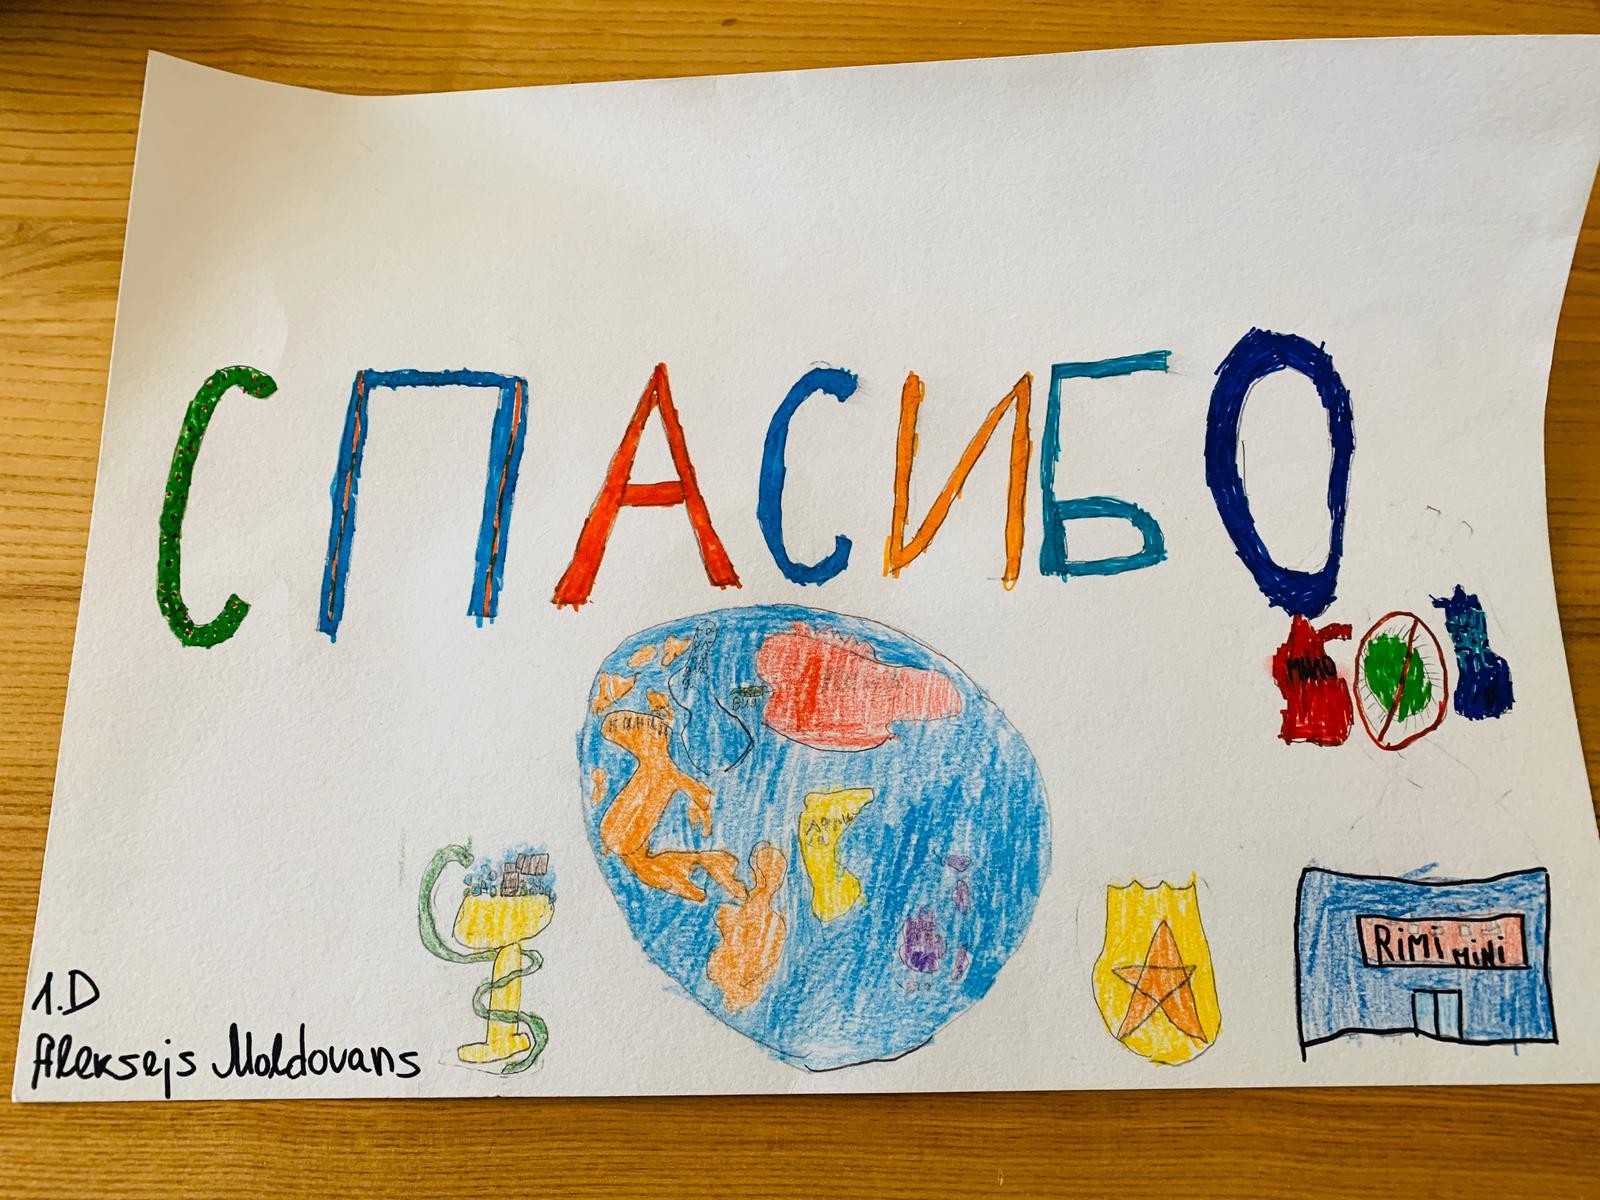 СПАСИБО
АФРИ
КА
RiMi MiNi
1.D
Aleksejs Moldovans